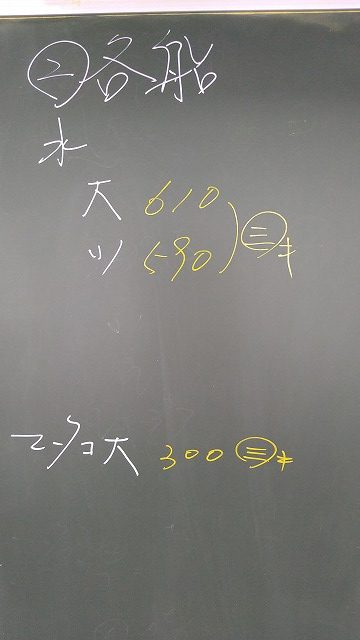 ㊁各船
水
大 610
小 590 ㊂キ
マダコ大 300 ㊂キ